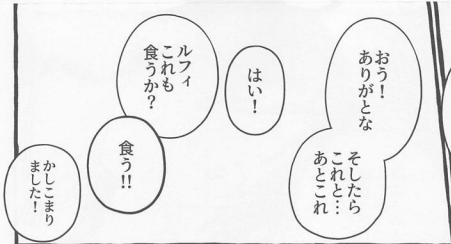 おう！
ありがとな
そしたら
これと…
あとこれ
はい！
ルフィ
これも
食うか？
食う!!
かしこまり
ました！